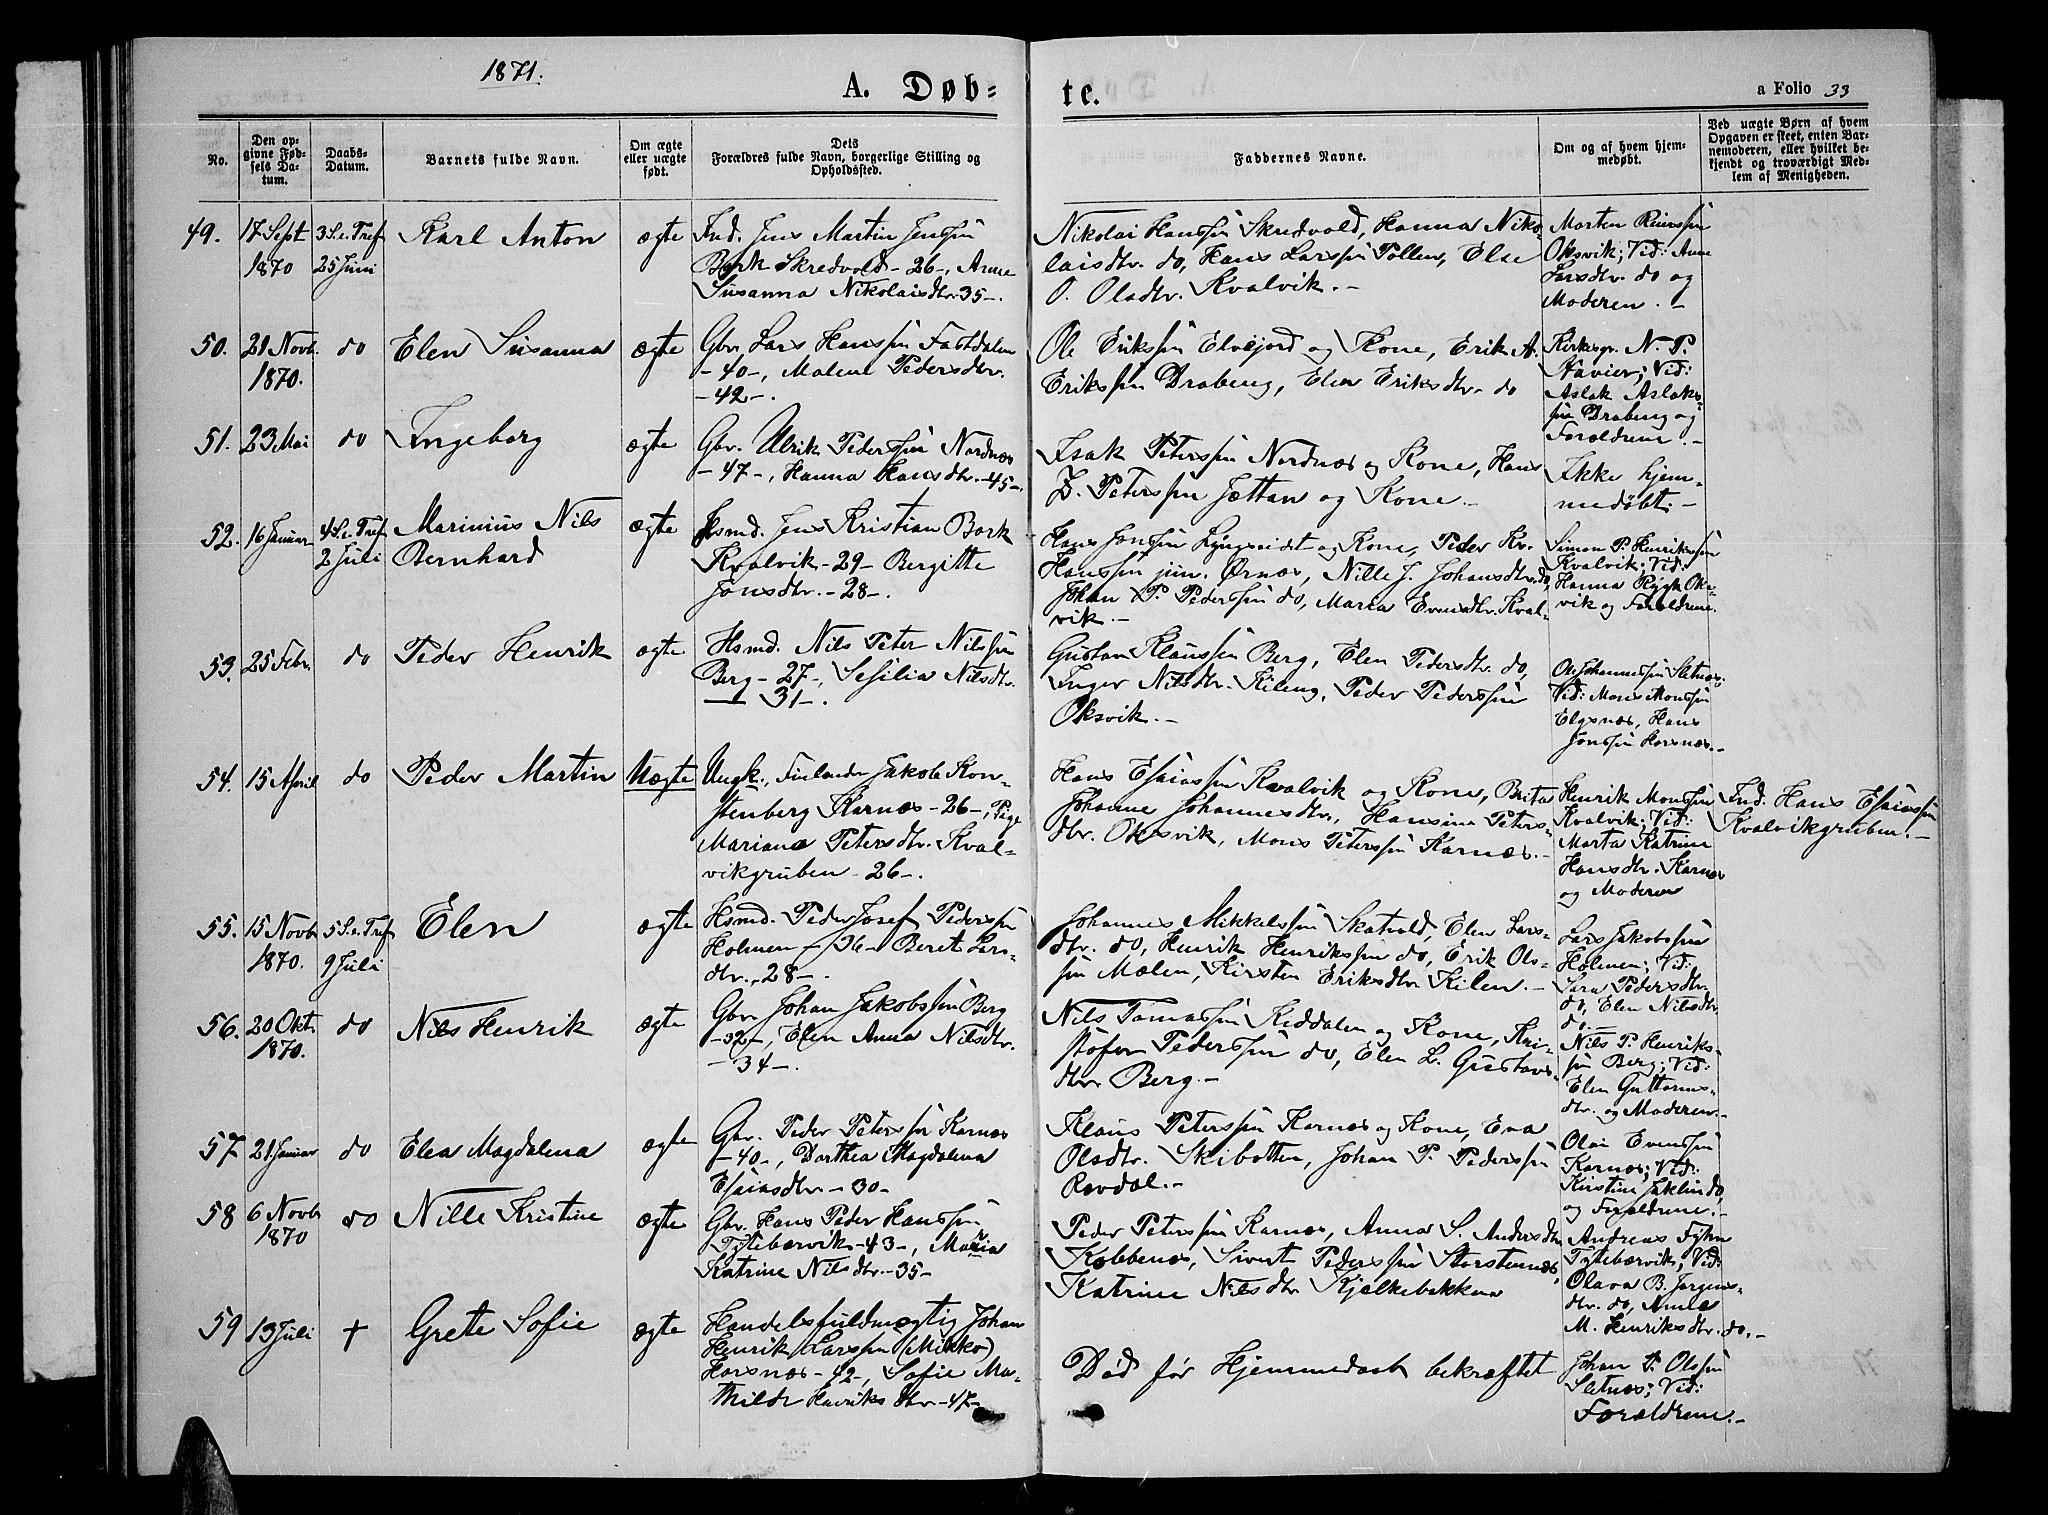 1871.
A. Døb=
te.
a Folio 33
No.
Den op-
givne Fød-
sels Da-
tum.
Daabs-
Datum.
Barnets fulde Navn.
Om ægte
eller uægte
født.
Dets
Forældres fulde Navn, borgerlige Stilling og
Opholdssted.
Faddernes Navne.
Om og af hvem hjem-
medøbt.
Ved uægte Børn af hvem
Opgaven er skeet, enten Bar-
nemoderen, eller hvilket be-
kjendt og troværdigt Med-
lem af Menigheden.
49.
17 Sept
1870
3 S. e. Tref
25 Juni
Karl Anton
ægte
Ind. Jens Martin Jenssøn
Bork Skredvold - 26 -, Anne
Susanna Nikolaisdtr. 35 -.
Nikolai Hanssøn Skredvold, Hanna Niko-
laisdtr. do, Hans Larssøn Pollen, Else
O. Olsdtr. Kvalvik. -
Morten Reierssøn
Oksvik; Vid: Anne
Larsdtr. do og
Moderen. -
50.
21 Novb.
1870.
do
Elen Susanna
ægte
Gbr. Lars Hanssøn Fastdalen
- 40 -, Malene Pedersdtr.
- 42 -.
Ole Erikssøn Elvejord og Kone, Erik A.
Erikssøn Draberg, Elen Eriksdtr. do
Kirkesgr. N. P.
Xavier; Vid:
Aslak Aslaks-
søn Draberg og
Forældrene. -
51.
23 Mai
do
Ingeborg
ægte
Gbr. Ulrik Pederssøn Nordnæs
- 47 -, Hanna Hansdtr. - 45 -.
Isak Peterssøn Nordnæs og Kone, Hans
Z. Peterssøn Jættan og Kone. -
Ikke hjem-
medøbt. -
52.
16 Januar
4 S. e. Tref
2 Juli
Marinius Nils
Bernhard
ægte
Hsmd. Jens Kristian Bork
Kvalvik - 29 - Bergitte
Jonsdtr. - 28 -.
Hans Jonssøn Lyngseidet og Kone, Peder Kr.
Hanssøn jun. Ørnæs, Nille J. Johansdtr. do,
Johan P. Pederssøn do, Maria Evensdtr. Kval-
vik. -
Simon P. Henrikssøn
Kvalvik; Vid:
Hanna Rygh Oks-
vik og Forældrene.
53.
25 Febr.
do
Peder Henrik
ægte
Hsmd. Nils Peter Nilssøn
Berg - 27 -, Sesilia Nilsdtr.
- 31 -.
Gustav Klaussøn Berg, Elen Pedersdtr. do,
Inger Nilsdtr. Kileng, Peder Pederssøn
Oksvik. -
Ole Johannessøn Sletnæs;
Vid: Mons Monssøn
Elgsnæs, Hans
Jonssøn Horsnæs. -
54.
15 April
do
Peder Martin
Uægte
Ungk., Finlænder Jakob Kon-
stenberg Karnæs - 26 -, Pige
Mariane Petersdtr. Kval-
vikgruben - 26 -.
Hans Esaiassøn Kvalvik og Kone, Brita
Johanne Johannesdtr., Hansine Peters-
dtr. Oksvik, Mons Peterssøn Karnæs. -
Henrik Monssøn
Kvalvik; Vid:
Marta Katrine
Hansdtr. Karnæs
og Moderen
Ind. Hans Esaiassøn
Kvalvikgruben. -
55.
15 Novb
1870.
5 S. e. Tref
9 Juli
Elen
ægte
Hsmd. Peder Josef Pederssøn
Holmen - 36 - Beret Lars-
dtr. - 28 -.
Johannes Mikkelssøn Skatvold, Elen Lars-
dtr. do, Henrik Henrikssøn do, Erik Ols-
søn Mælen, Kirsten Eriksdtr. Kilen. -
Lars Jakobssøn
Holmen; Vid:
Sara Pedersdtr.
do, Elen Nilsdtr.
do. -
56.
20 Okt.
1870.
do
Nils Henrik
ægte
Gbr. Johan Jakobssøn Berg
- 32 -, Elen Anna Nilsdtr.
- 34 -.
Nils Tomassøn Kiddalen og Kone, Kri-
stofer Pederssøn do, Elen L. Gustavs-
dtr. Berg. -
Nils P. Henriks-
søn Berg; Vid:
Elen Guttorms-
dtr. og Moderen. -
57
21 Januar
do
Elen Magdalena
ægte
Gbr. Peder Peterssøn Karnæs
- 40 -, Dorthea Magdalena
Esaiasdtr. - 30 -
Klaus Peterssøn Karnæs og Kone, Eva
Olsdtr. Skibotten, Johan P. Pederssøn
Rovdal. -
Olai Evenssøn
Karnæs; Vid:
Kirstine Jaklin do,
og Forældrene. -
58
6 Novb.
1870
do
Nille Kristine
ægte
Gbr. Hans Peder Hanssøn
Tytebærvik - 43 -, Maria
Katrine Nilsdtr. - 35 -
Peder Peterssøn Karnæs, Anna S. Andersdtr.
Kobbenæs, Sivert Pederssøn Storstennæs,
Katrine Nilsdtr. Kjelkebakken
Andreas Fyhn
Tytebærvik; Vid:
Olava B. Jørgens-
dtr. do, Anne
M. Henriksdtr. do. -
59
13 Juli
+
Grete Sofie
ægte
Handelsfuldmægtig Johan
Henrik Larssøn (Mikko)
Horsnæs - 42 -, Sofie Ma-
thilde Henriksdtr. - 47 -
Død før Hjemmedaab bekræftet
Johan P. Olssøn
Sletnæs; Vid:
Forældrene. -